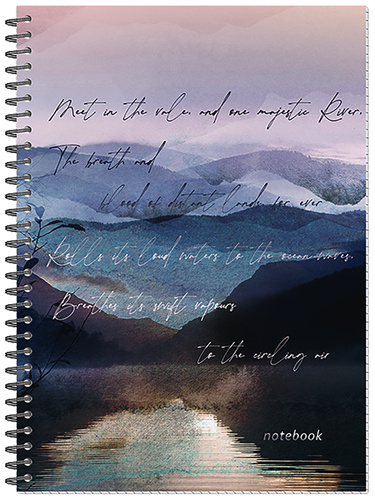 Meet in the vale, and one majestic River,
The breath and
blood of distant lands, for ever
Rolls its loud waters to the ocean-waves,
Breathes its swift vapours
to the circling air
notebook